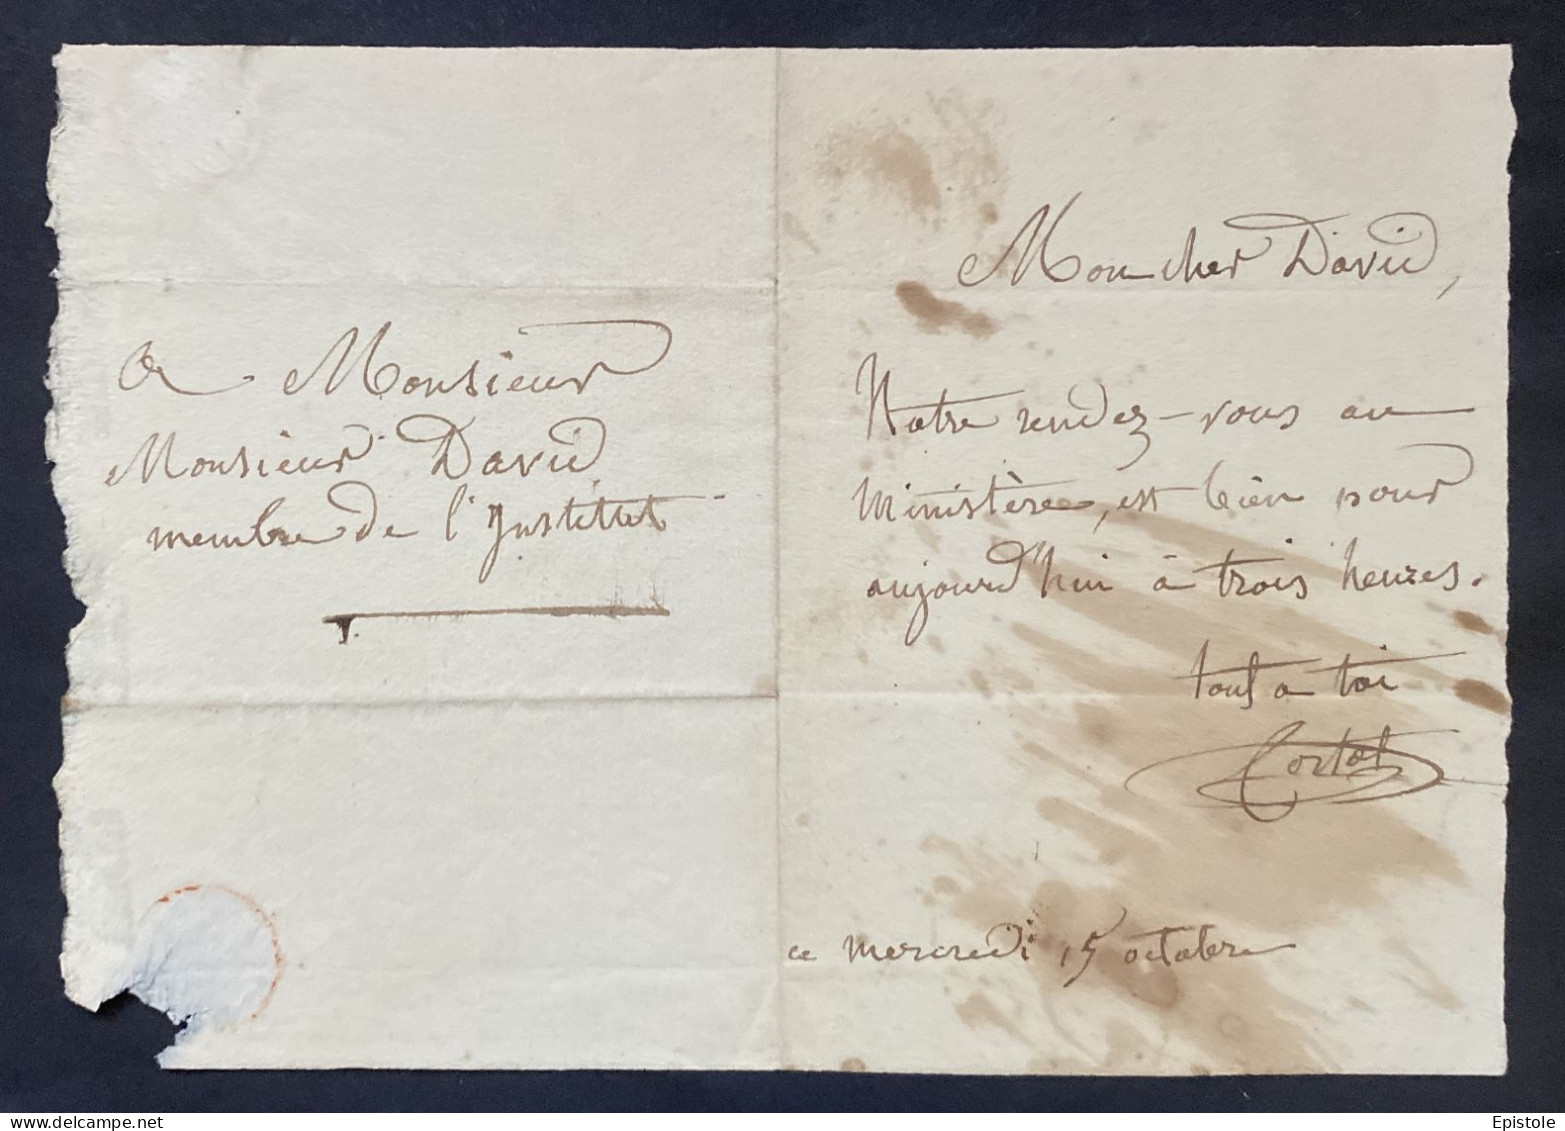 a Monsieur
Monsieur David
membre de l'Institut
Mon cher David,
Notre rendez-vous au
Ministère, est bien pour
aujourd'hui à trois heures.
tout a toi
Cortot
ce mercredi 15 octobre
www.delcampe.net
Epistole